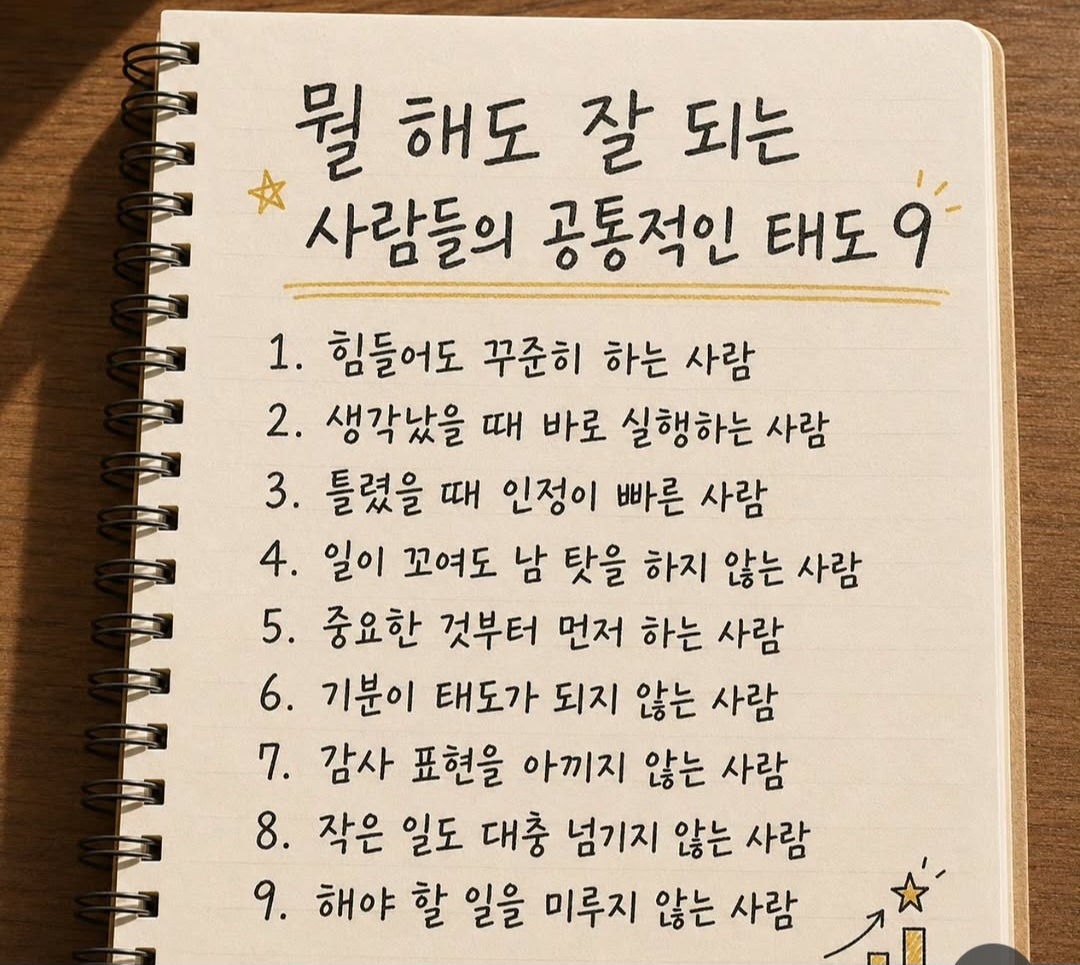 뭘 해도 잘 되는
사람들의 공통적인 태도 9
1. 힘들어도 꾸준히 하는 사람
2. 생각났을 때 바로 실행하는 사람
3. 틀렸을 때 인정이 빠른 사람
4. 일이 꼬여도 남 탓을 하지 않는 사람
5. 중요한 것부터 먼저 하는 사람
6. 기분이 태도가 되지 않는 사람
7. 감사 표현을 아끼지 않는 사람
8. 작은 일도 대충 넘기지 않는 사람
9. 해야 할 일을 미루지 않는 사람